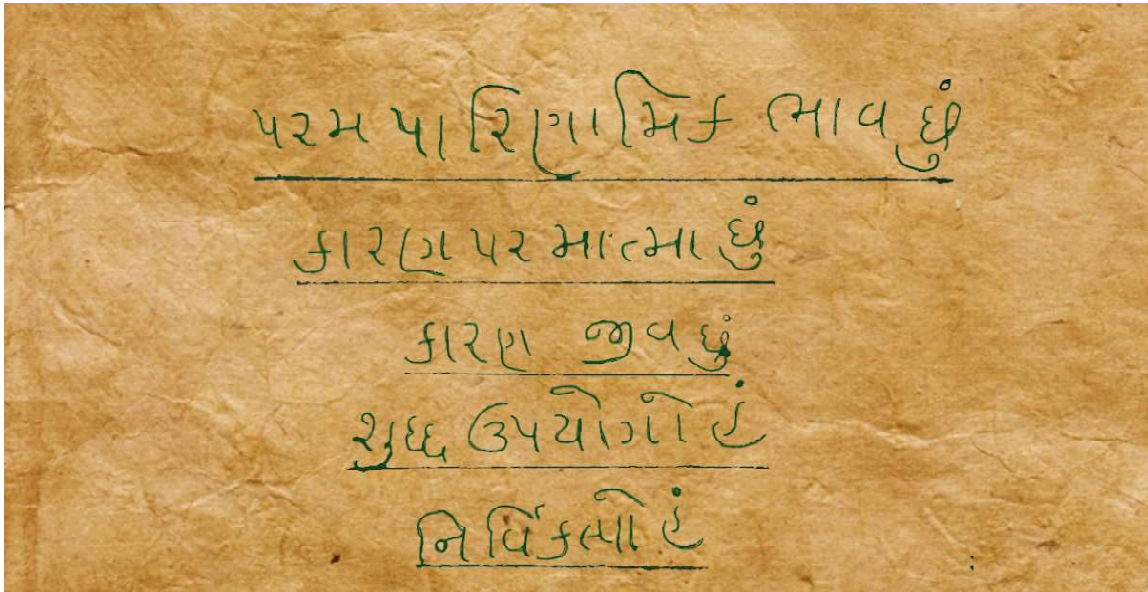 પરમ પારિણામિક ભાવ છું
કારણ પરમાત્મા છું
કારણ જીવ છું
શુદ્ધ ઉપયોગોહં
નિર્વિકલ્પોહં